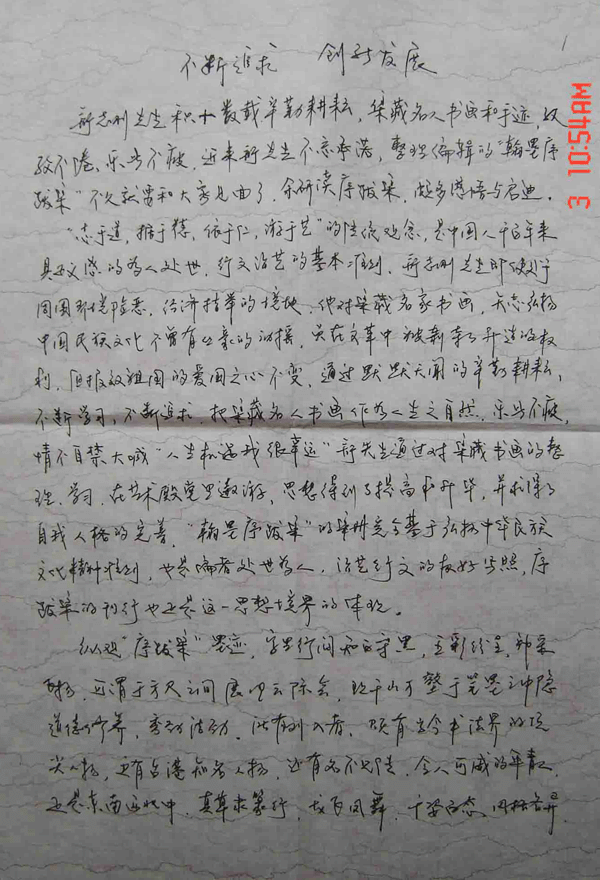 不断追求 创新发展
1
3 10:54AM
靳志刚先生积十数载辛勤耕耘，集藏名人书画和手迹，孜
孜不倦，乐此不疲。近来靳先生不忘承诺，整理编辑的“翰墨序
跋集”不久就要和大家见面了。余研读序跋集，颇多感悟与启迪。
“志于道，据于德，依于仁，游于艺”的传统观念，是中国人千百年来
的为人处世，行文治艺的基本准则。靳志刚先生即使处于
周围环境险恶，经济拮据的境地，他对集藏名家书画，矢志弘扬
中国民族文化不曾有丝毫的动摇，虽在文革中被剥夺了升造的权
利，但报效祖国的爱国之心不变，通过默默无闻的辛勤耕耘，
不断学习，不断追求，把集藏名人书画作为人生之自然，乐此不疲，
情不自禁大喊“人生机遇我很幸运”靳先生通过对集藏书画的整
理、学习，在艺术殿堂里遨游，思想得到了提高和升华，并求得了
自我人格的完善。“翰墨序跋集”的集册完全基于弘扬中华民族
文化精神准则，也是编者处世为人，治艺行文的极好写照，序
跋集的刊行也正是这一思想境界的体现。
纵观“序跋集”墨迹，字里行间知白守黑，五彩纷呈，神采
，可谓于方尺之间展风云际会，现千山万壑于笔墨之中隐
道德修养，变动活动。此有刊入者，颇有当今书法界的顶
尖人物，更有台港知名人物，还有名不见传，令人可感的年青人，
正是东南西北中，真草隶篆行，龙飞凤舞，千姿百态，风格各异